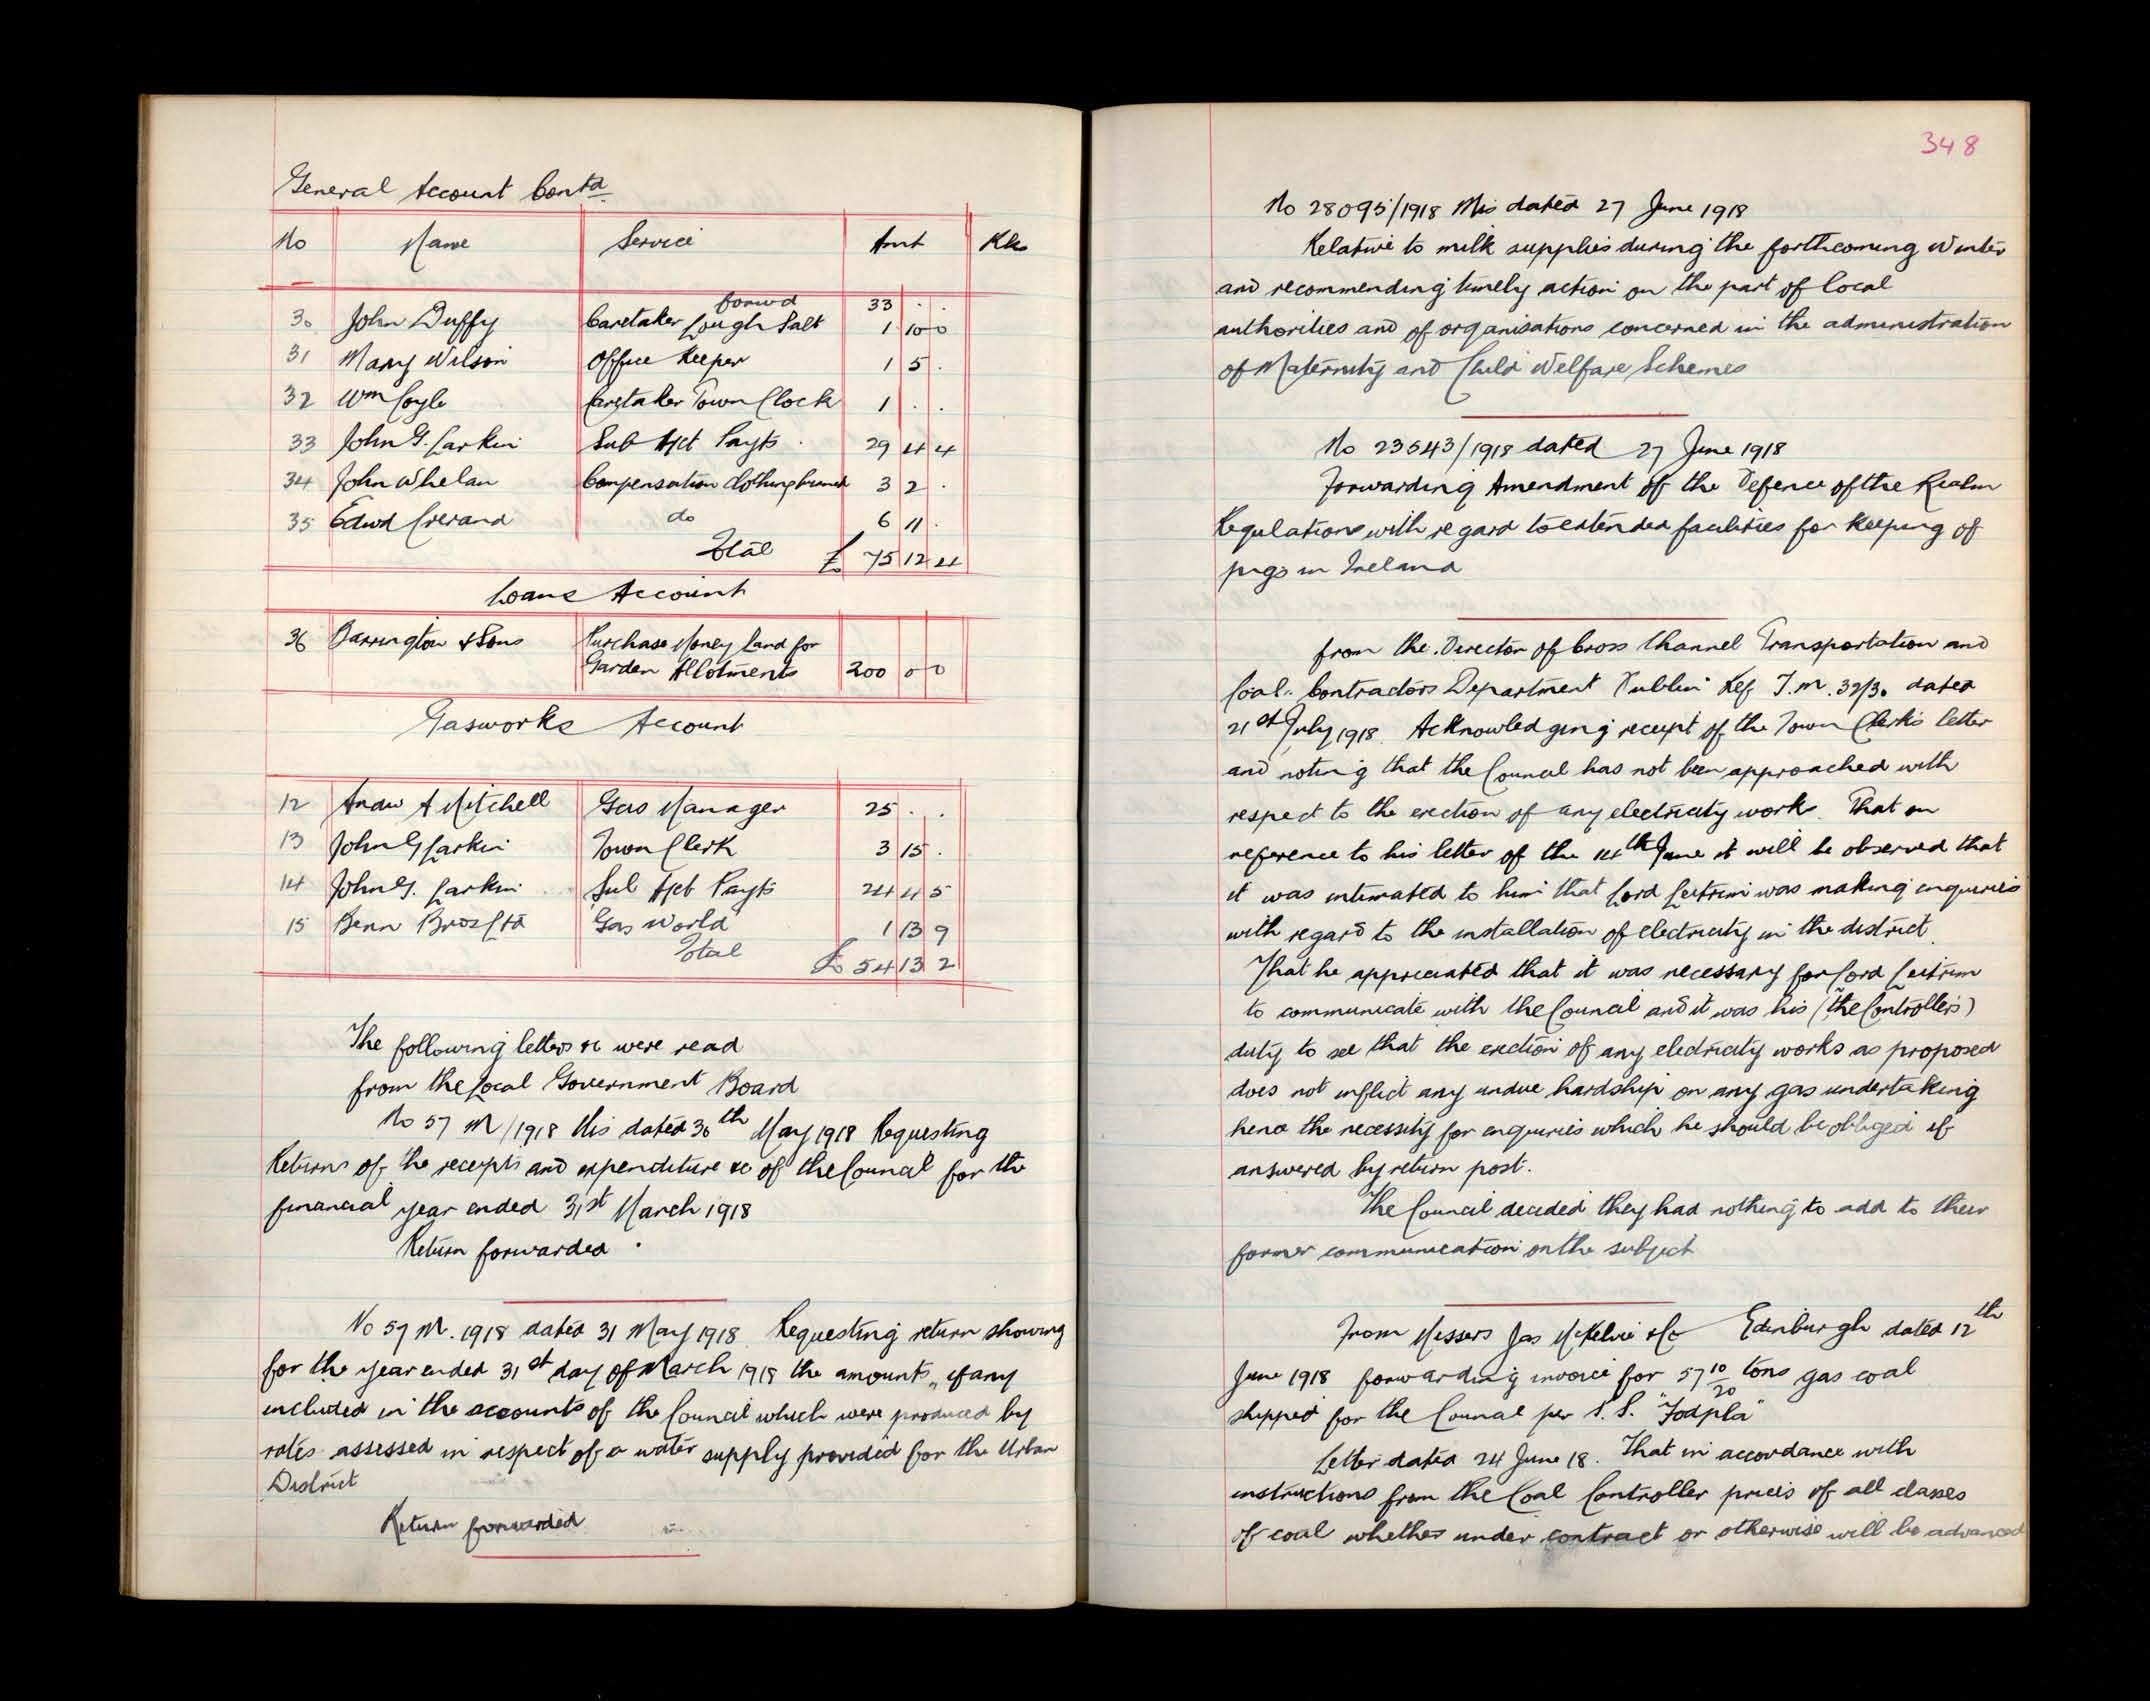 General Account Contd
No Name Service Amt Rks
forwd 33 . .
30 John Duffy Caretaker Lough Salt 1 10 0
31 Mary Wilson Office Keeper 1 5 .
32 Wm Coyle Caretaker Town Clock 1 . .
33 John G. Larkin Sub Acct Payts . 29 4 4
34 John Whelan Compensation Clothing burned 3 2 .
35 Edwd Crerand do 6 11 .
Total £ 75 12 4
Loans Account
36 Barrington & Sons Purchase Money Land for
Garden Allotments 200 0 0
Gasworks Account
12 Andw A Mitchell Gas Manager 25 . .
13 John G Larkin Town Clerk 3 15 .
14 John G. Larkin Sub Acct Payts 24 4 5
15 Benn Bros Ltd Gas World 1 13 9
Total £ 54 13 2
The following letters &c were read
from the Local Government Board
No 57 M/1918 Mis dated 30th May 1918 Requesting
Returns of the receipts and expenditure &c of the Council for the
financial year ended 31st March 1918
Return forwarded .
No 57 M. 1918 dated 31 May 1918 Requesting return showing
for the year ended 31st day of March 1918 the amounts, if any
included in the accounts of the Council which were produced by
rates assessed in respect of a water supply provided for the Urban
District
Return forwarded
348
No 28095/1918 Mis dated 27 June 1918
Relative to milk supplies during the forthcoming Winter
and recommending timely action on the part of local
authorities and of organisations concerned in the administration
of Maternity and Child Welfare Schemes
No 23543/1918 dated 27 June 1918
Forwarding Amendment of the Defence of the Realm
Regulations with regard to extended facilities for keeping of
pigs in Ireland
from the Director of Cross Channel Transportation and
Coal. Contractors Department Dublin Ref T.M. 32/30 dated
21st July 1918. Acknowledging receipt of the Town Clerk's letter
and noting that the Council has not been approached with
respect to the erection of any electricity work. That on
reference to his letter of the 14th June it will be observed that
it was intimated to him that Lord Leitrim was making inquiries
with regard to the installation of electricity in the district.
That he appreciated that it was necessary for Lord Leitrim
to communicate with the Council and it was his (the Controller's)
duty to see that the erection of any electricity works as proposed
does not inflict any undue hardship on any gas undertaking
hence the necessity for enquiries which he should be obliged if
answered by return post.
The Council decided they had nothing to add to their
former communication on the subject
From Messers Jas McKelvie & Co Edinburgh dated 12th
June 1918 forwarding invoice for 57 10/20 tons gas coal
shipped for the Council per S. S. "Fodpla"
Letter dated 24 June 18. That in accordance with
instructions from the Coal Controller prices of all classes
of coal whether under contract or otherwise will be advanced